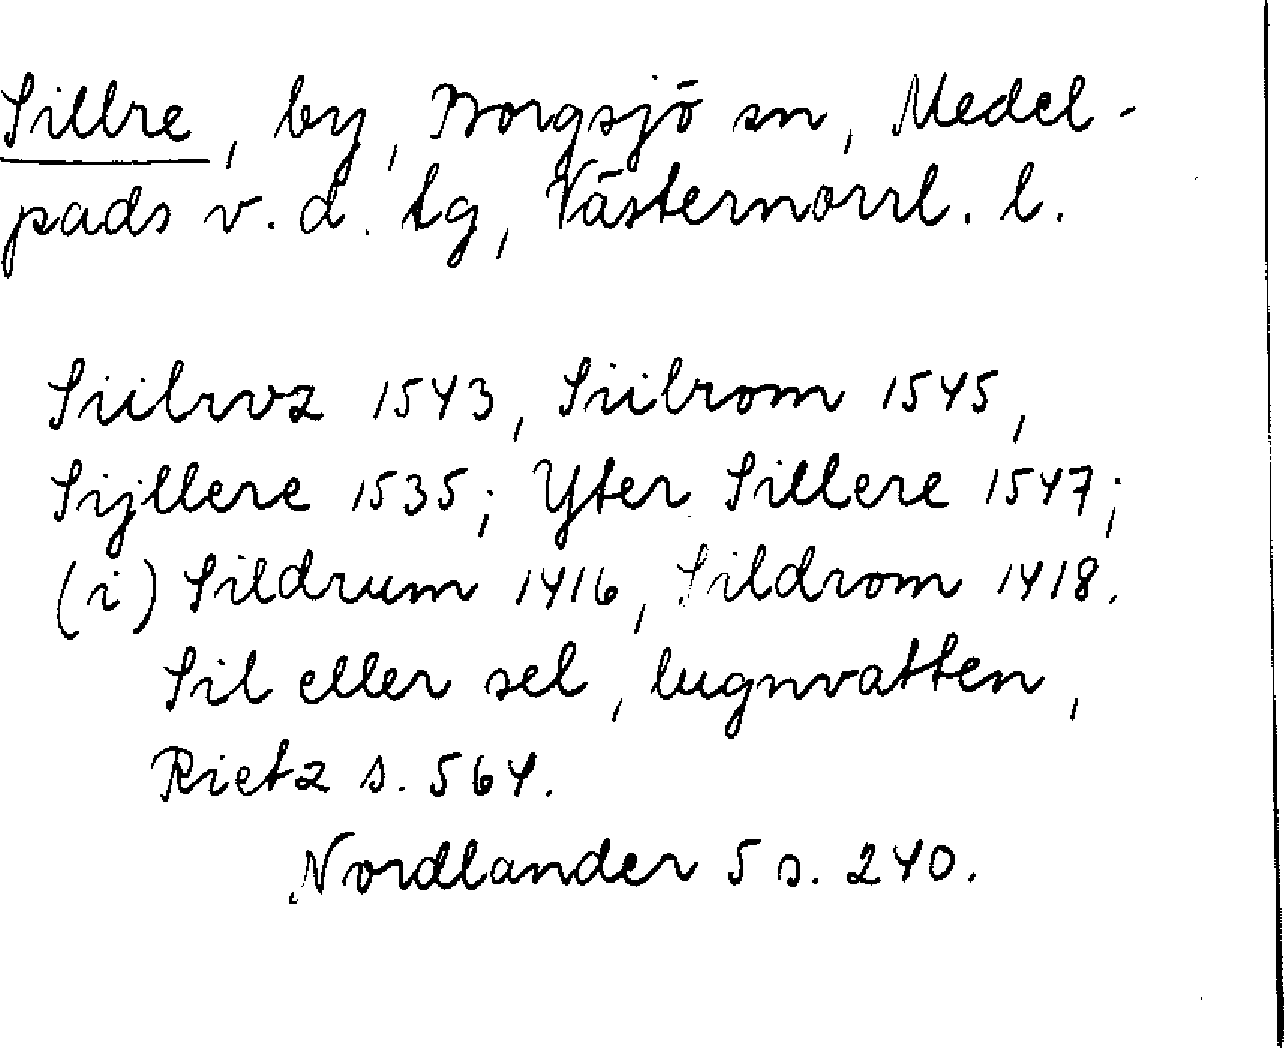 Sillre, by, Borgsjö sn, Medel-
pads v. d. tg, Västernorrl. l.
Siilrvz 1543, Siilrom 1545,
Sijllere 1535; Yter Sillere 1547;
(i) Sildrum 1416, Sildrom 1418.
Sil eller sel, lugnvatten,
Rietz s. 564.
Nordlander 5 s. 240.